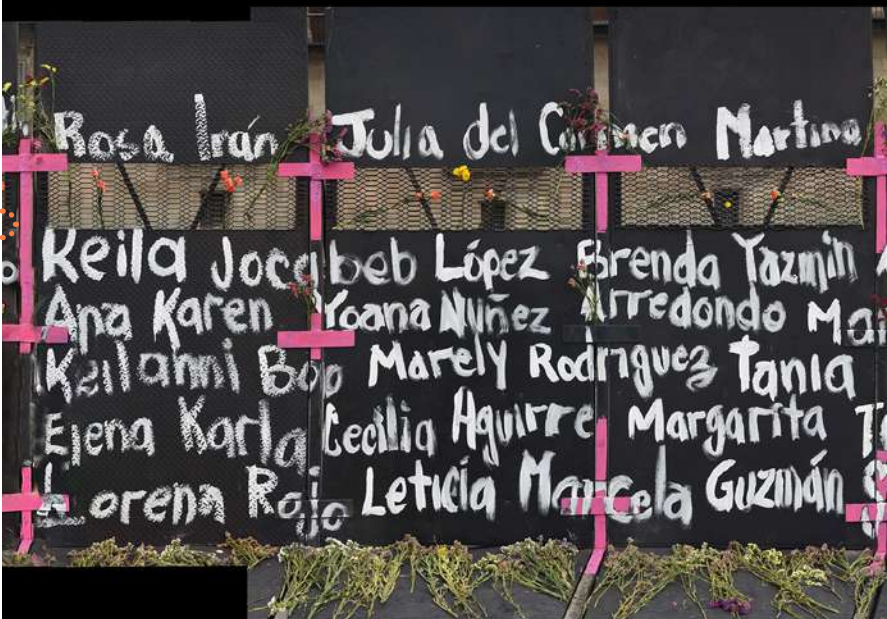 Rosa Irán Julia del Carmen Martina
Keila Jocabeb López Brenda Yazmín
Ana Karen Yoana Nuñez Arredondo
Keilanni Marely Rodríguez Tania
Elena Karla Cecilia Aguirre Margarita
Lorena Rojo Leticia Marcela Guzmán